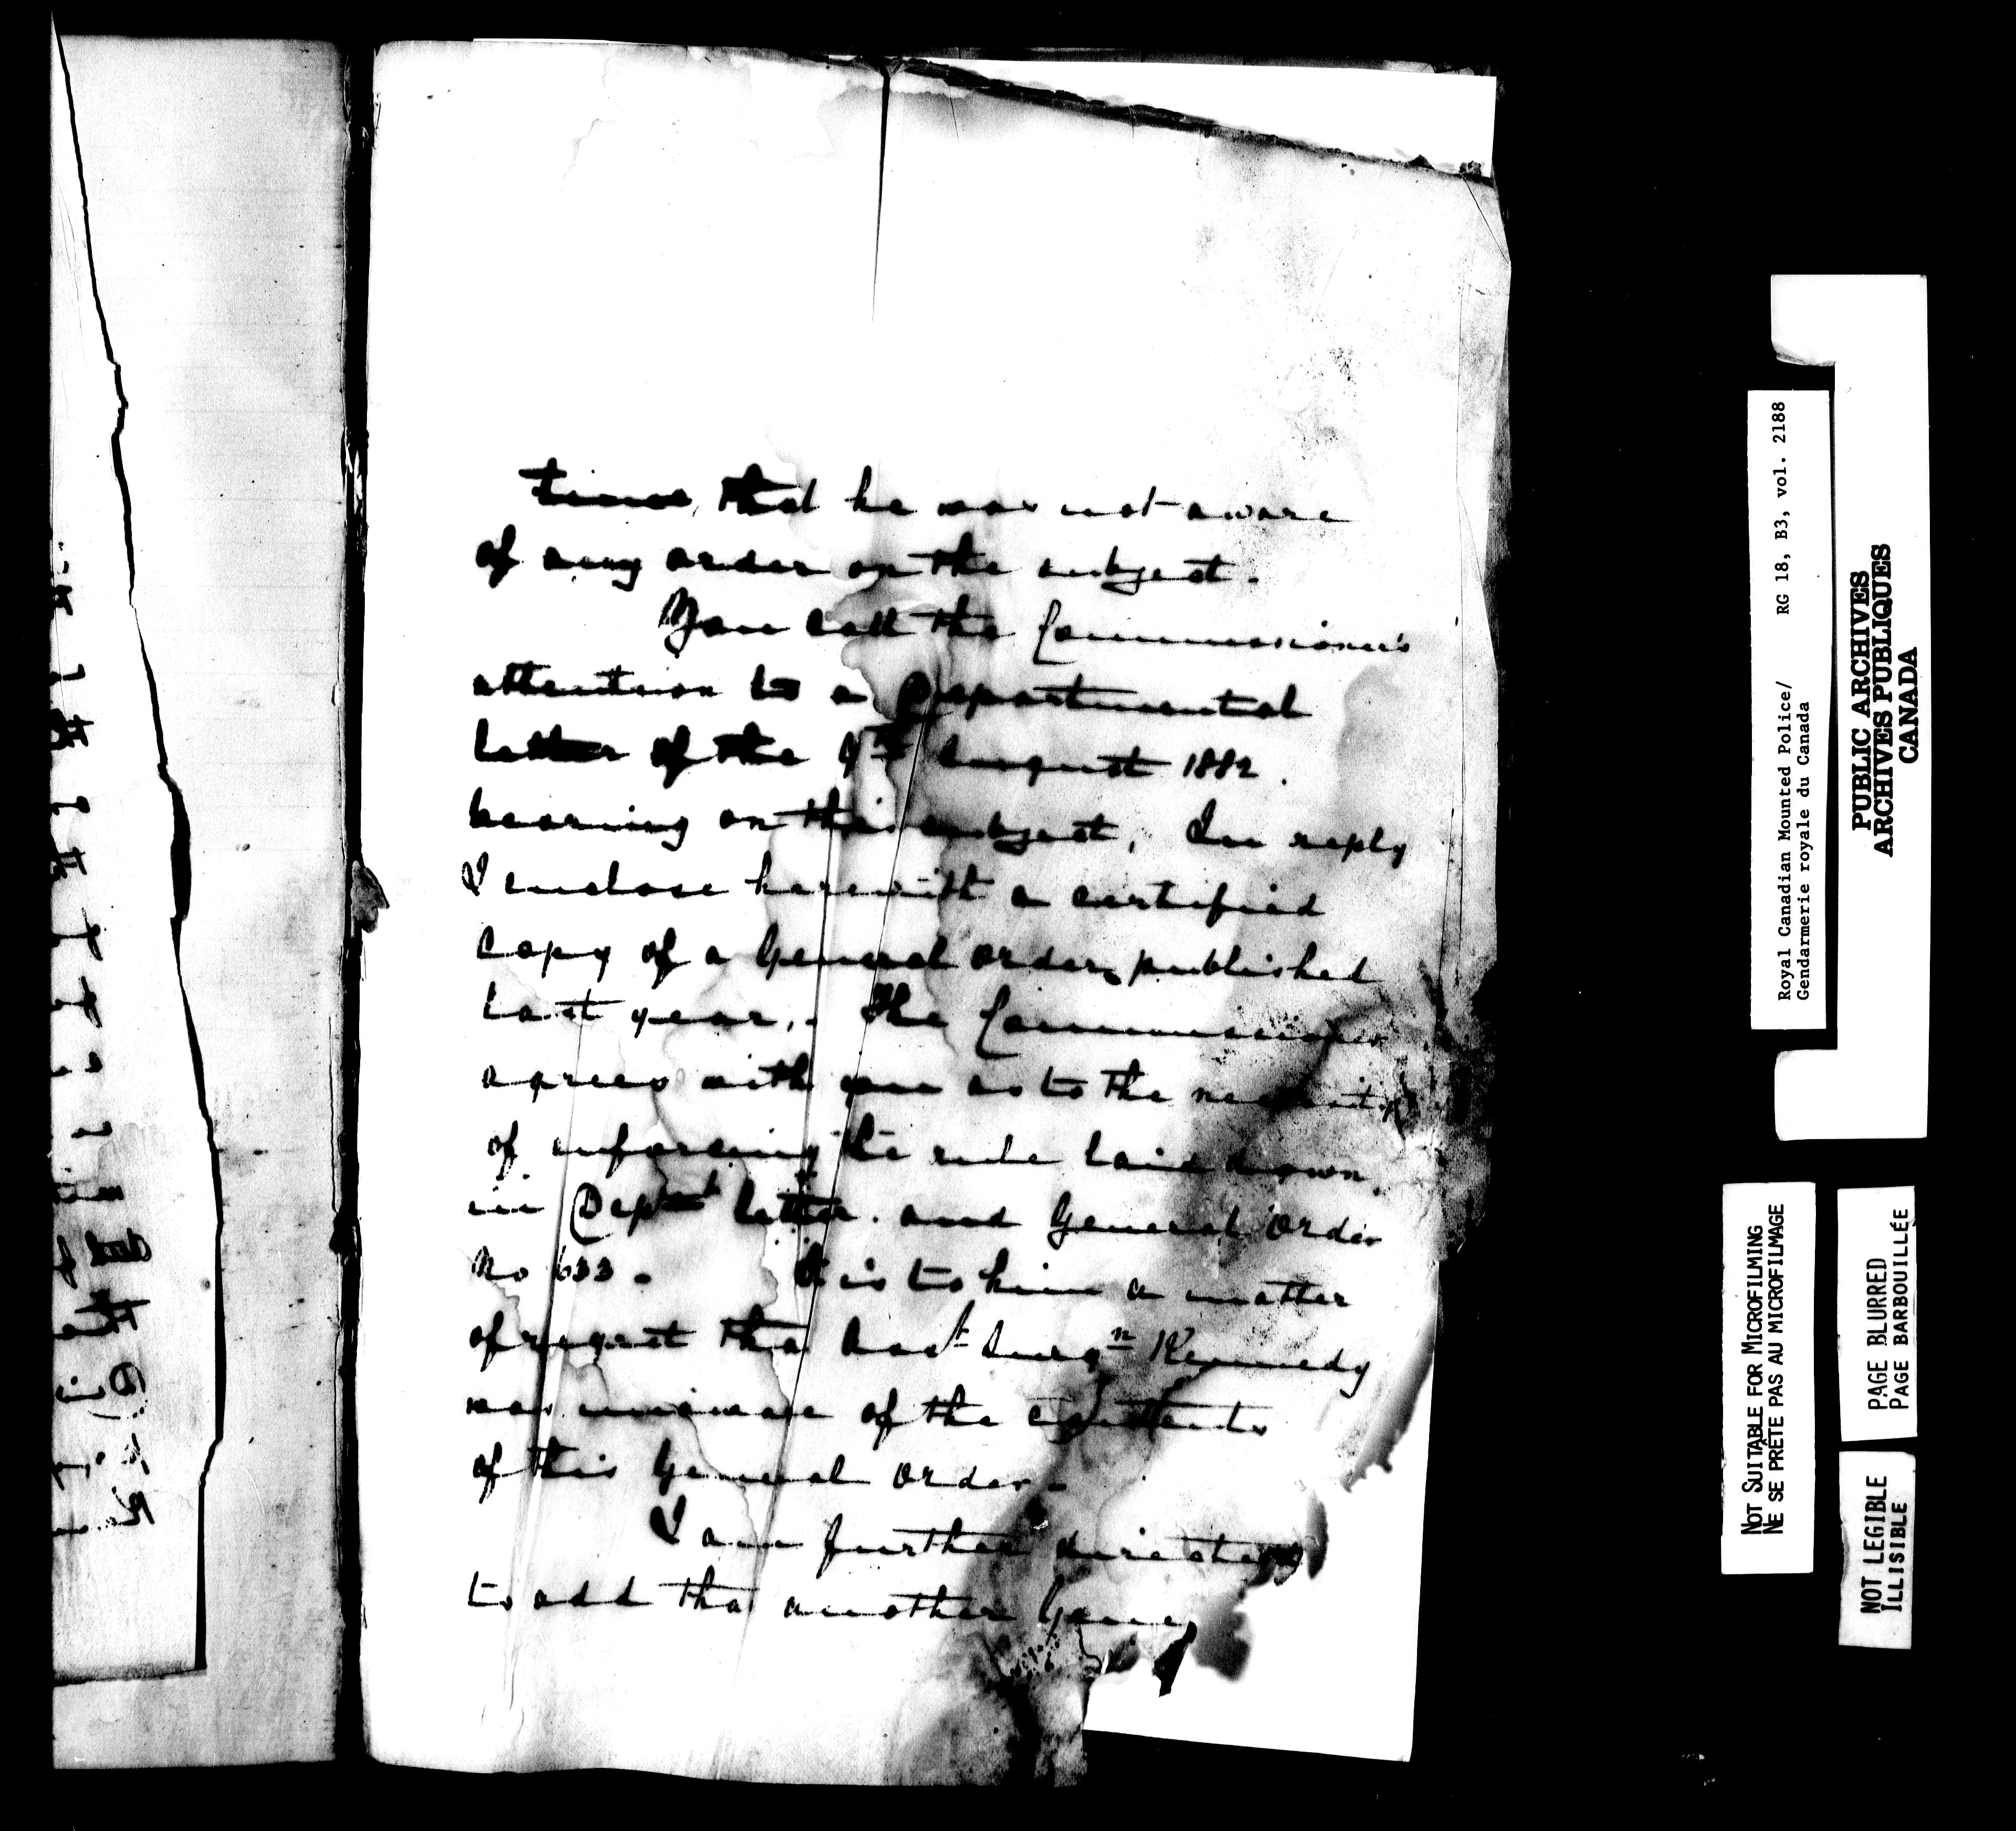 time, that he was not aware
of any order on the subject.
You call the Commissioner's
attention to a Departmental
letter of the 9th August 1882.
bearing on this subject, In reply
I enclose herewith a certified
copy of a General order published
last year. The Commissioner
agrees with you as to the necessity
of enforcing the rule laid down
in Dept letter. and General Order
No 633. It is to him a matter
of regret that Asst Surgn Kennedy
was unaware of the contents
of this General Order.
I am further directed
to add that another
Royal Canadian Mounted Police/ RG 18, B3, vol. 2188
Gendarmerie royale du Canada
PUBLIC ARCHIVES
ARCHIVES PUBLIQUES
CANADA
NOT SUITABLE FOR MICROFILMING
NE SE PRÊTE PAS AU MICROFILMAGE
PAGE BLURRED
PAGE BARBOUILLÉE
NOT LEGIBLE
ILLISIBLE